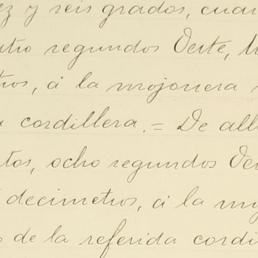 ez y seis grados, cuar
tro segundos Oeste,
ros, á la mojonera
a cordillera. = De all
tos, ocho segundos Oe
decimetros, á la mo
s de la referida cordi